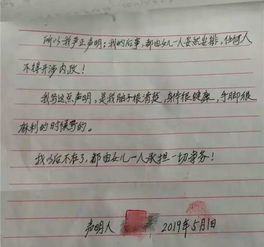 所以我严正声明：我的后事，都由女儿一人妥然安排，任何人
不得干涉内政！
我写这点声明，是我脑子很清楚，身体很健康，手脚很
麻利的时候写的。
我今后不在了，都由女儿一人承担一切事务！
声明人
2019年5月1日